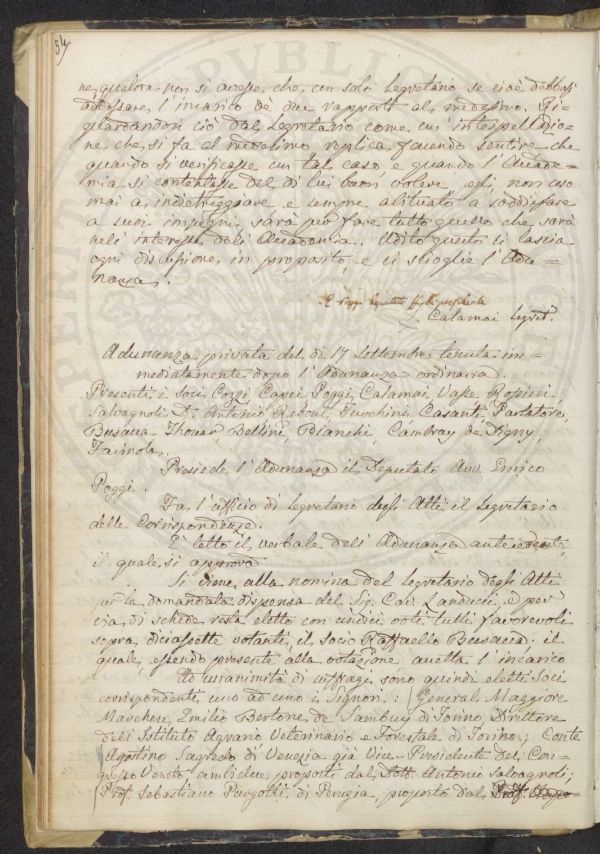 54
ne, qualora non si avesse che un solo Segretario, se cioè debbasi
addossare l'incarico de' due rapporti al medesimo. Ri=
guardandosi ciò dal Segretario come un'interpellazio=
ne, che si fa al medesimo replica facendo sentire che
quando si verificasse un tal caso e quando l'Accade=
mia si contentasse del di lui buon volere, egli, non uso
mai a indietreggiare e sempre abituato a soddisfare
a suoi impegni, sarà per fare tutto quello che sarà
nell'interesse dell'Accademia. Udito questo si lascia
ogni discussione in proposito, e si scioglie l'Adu=
nanza.
E. Poggi Deputato ff. di presidente
Calamai Segret.
Adunanza privata del dì 17 Settembre tenuta im=
mediatamente dopo l'Adunanza ordinaria.
Presenti i Soci Cozzi Capei Poggi, Calamai,
Salvagnoli D. Antonio Ridolfi, Cuschini, Casanti Parlatore,
Busacca Thouar Bellini, Bianchi, Cambray de Digny,
Presiede l'Adunanza il Deputato Avv. Enrico
Poggi.
Fa l'ufficio di Segretario degli Atti il Segretario
delle Corrispondenze.
È letto il verbale dell'Adunanza antecedente
il quale si approva
Si viene alla nomina del Segretario degli Atti
per la domandata dispensa del Sig. Cav. Landucci, e per
via di schede resta eletto con undici voti tutti favorevoli
sopra diciassette votanti, il Socio Raffaello Busacca; il
quale, essendo presente alla votazione, accetta l'incarico
Ad unanimità di suffragi sono quindi eletti Soci
corrispondenti, uno ad uno i Signori: General Maggiore
Marchese Emilio Bertone de Sambuy di Torino, Direttore
dell'Istituto Agrario Veterinario e Forestale di Torino; Conte
Agostino Sagredo di Venezia già Vice-Presidente del Con=
gresso Veneto, ambidue proposti dal Dott. Antonio Salvagnoli;
Prof. Sebastiano Purgotti di Perugia, proposto dal Prof.